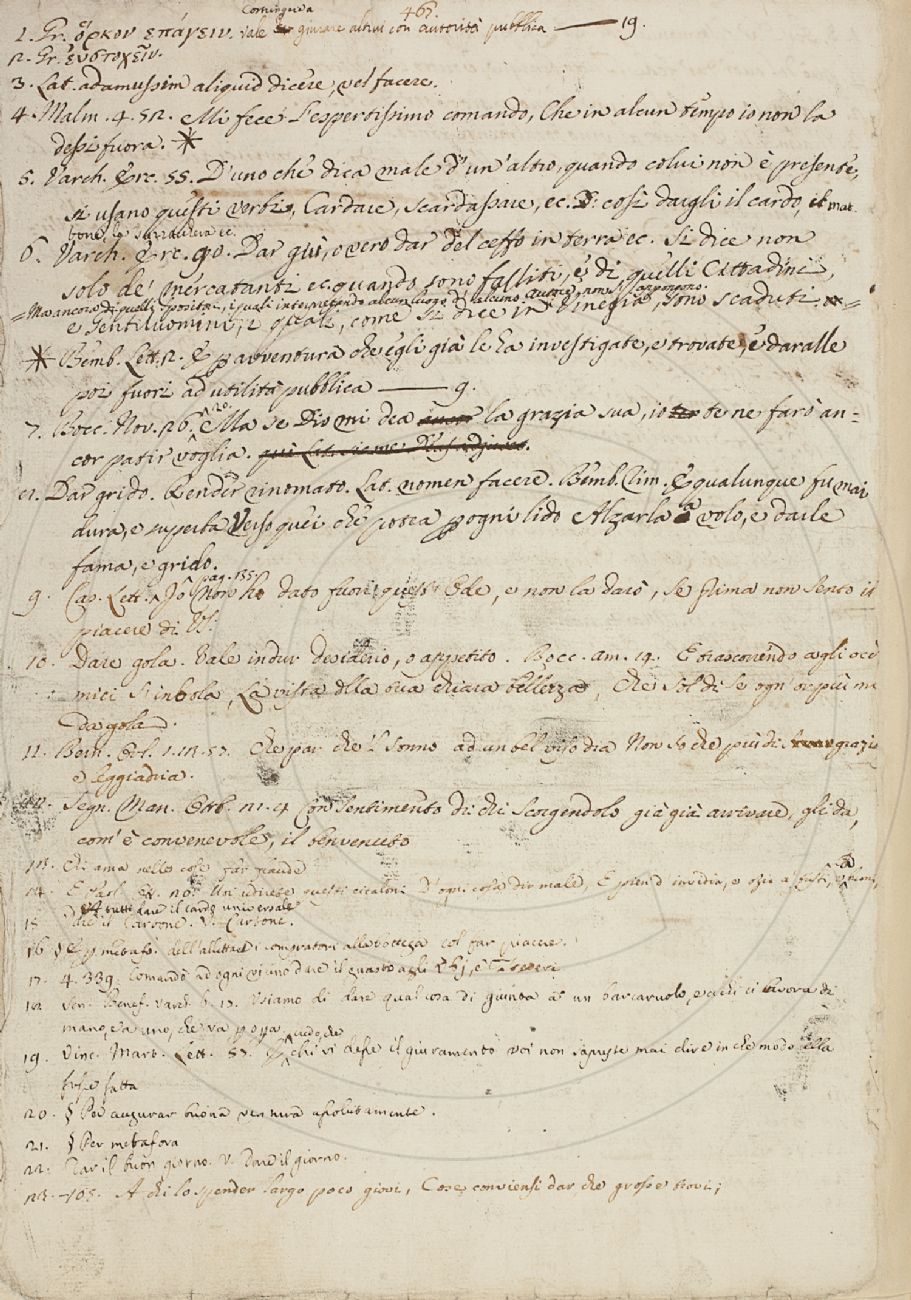 467.
Costringere a
1. Gr. ὅρκον ἐπάγειν. Vale giurare altrui con autorità pubblica —— 19.
2. Gr. εὐστοχεῖν.
3. Lat. adamussim aliquid dicere, vel facere.
4. Malm. 4. 52. Mi fece l'espertissimo comando, Che in alcun tempo io non la
dessi fuora. *
5. Varch. Erc. 55. D'uno che dica male d'un'altro, quando colui non è presente,
si usano questi verbi, Cardare, scardassare, ec. E così dargli il cardo, il mat-
tone, ec.
6. Varch. Erc. 90. Dar giù, o vero dar del ceffo in terra ec. Si dice non
solo de' mercatanti ec. quando sono falliti, e di quelli Cittadini,
= Ma ancora di quelli spositori, i quali interpretando alcun luogo d'alcuno autore, non s'appongono.
e Gentiluomini, i quali, come si dice in Vinegia, sono scaduti =
* Bemb. Lett. 2. E p avventura che egli già le ha investigate, e trovate, e daralle
poi fuori ad utilità pubblica —— 9.
7. Bocc. Nov. 76. 10. Ma se Dio mi dea la grazia sua, io te ne farò an-
cor patir voglia.
8. Dar grido. Render rinomato. Lat. nomen facere. Bemb. Rim. E qualunque fu mai
dura, e superba Verso quei che potea p ogni lido Alzarla a volo, e darle
fama, e grido.
pag. 135
9. Cap. Lett. Io Non ho dato fuori quest' Ode, e non la darò, se prima non sento il
piacere di VS.
10. Dare gola. Vale indur desiderio, o appetito. Bocc. am. 19. E trascorrendo agli occhi
miei s'imbola, La vista della tua chiara bellezza, Che sol di se ogn'or più mi
da gola.
11. Bern. Orl. 1. Che par che 'l sonno ad un bel viso dia Non so che più di grazia
e leggiadria.
12. Segn. Man. Ottb. 21. 4 Con sentimento di chi scorgendolo già già arrivare, gli dà,
com'è convenevole, il benvenuto
13. Chi ama nelle cose far fraude
14. Voi udirete questi cicaloni D'ogni cosa dir male, E pien d'invidia, e
A tutti dare il cardo universale
15. Dare il Carbone. V. Carbone.
16 § E p metafo. dell'allettare i compratori alla bottega col far piacere.
17. 4. 339. Comandò ad ogni vicino dare il guasto agli
18. Sen. Benef. Varch. 6. 15. Usiamo di dare qualcosa di giunta a un barcaruolo, e a chi ci lavora di
mano, e a uno, che va p opa.
19. Vinc. Mart. Lett. 53. E credo, che chi vi desse il giuramento voi non sapreste mai dire in che modo ella
fusse fatta
20. § Per augurar buona ventura assolutamente.
21. § Per metafora
22. Dar il buon giorno. V. Dare il giorno.
23. 105. A chi lo spender largo poco giovi, Cose, conviensi dar che grosse trovi;